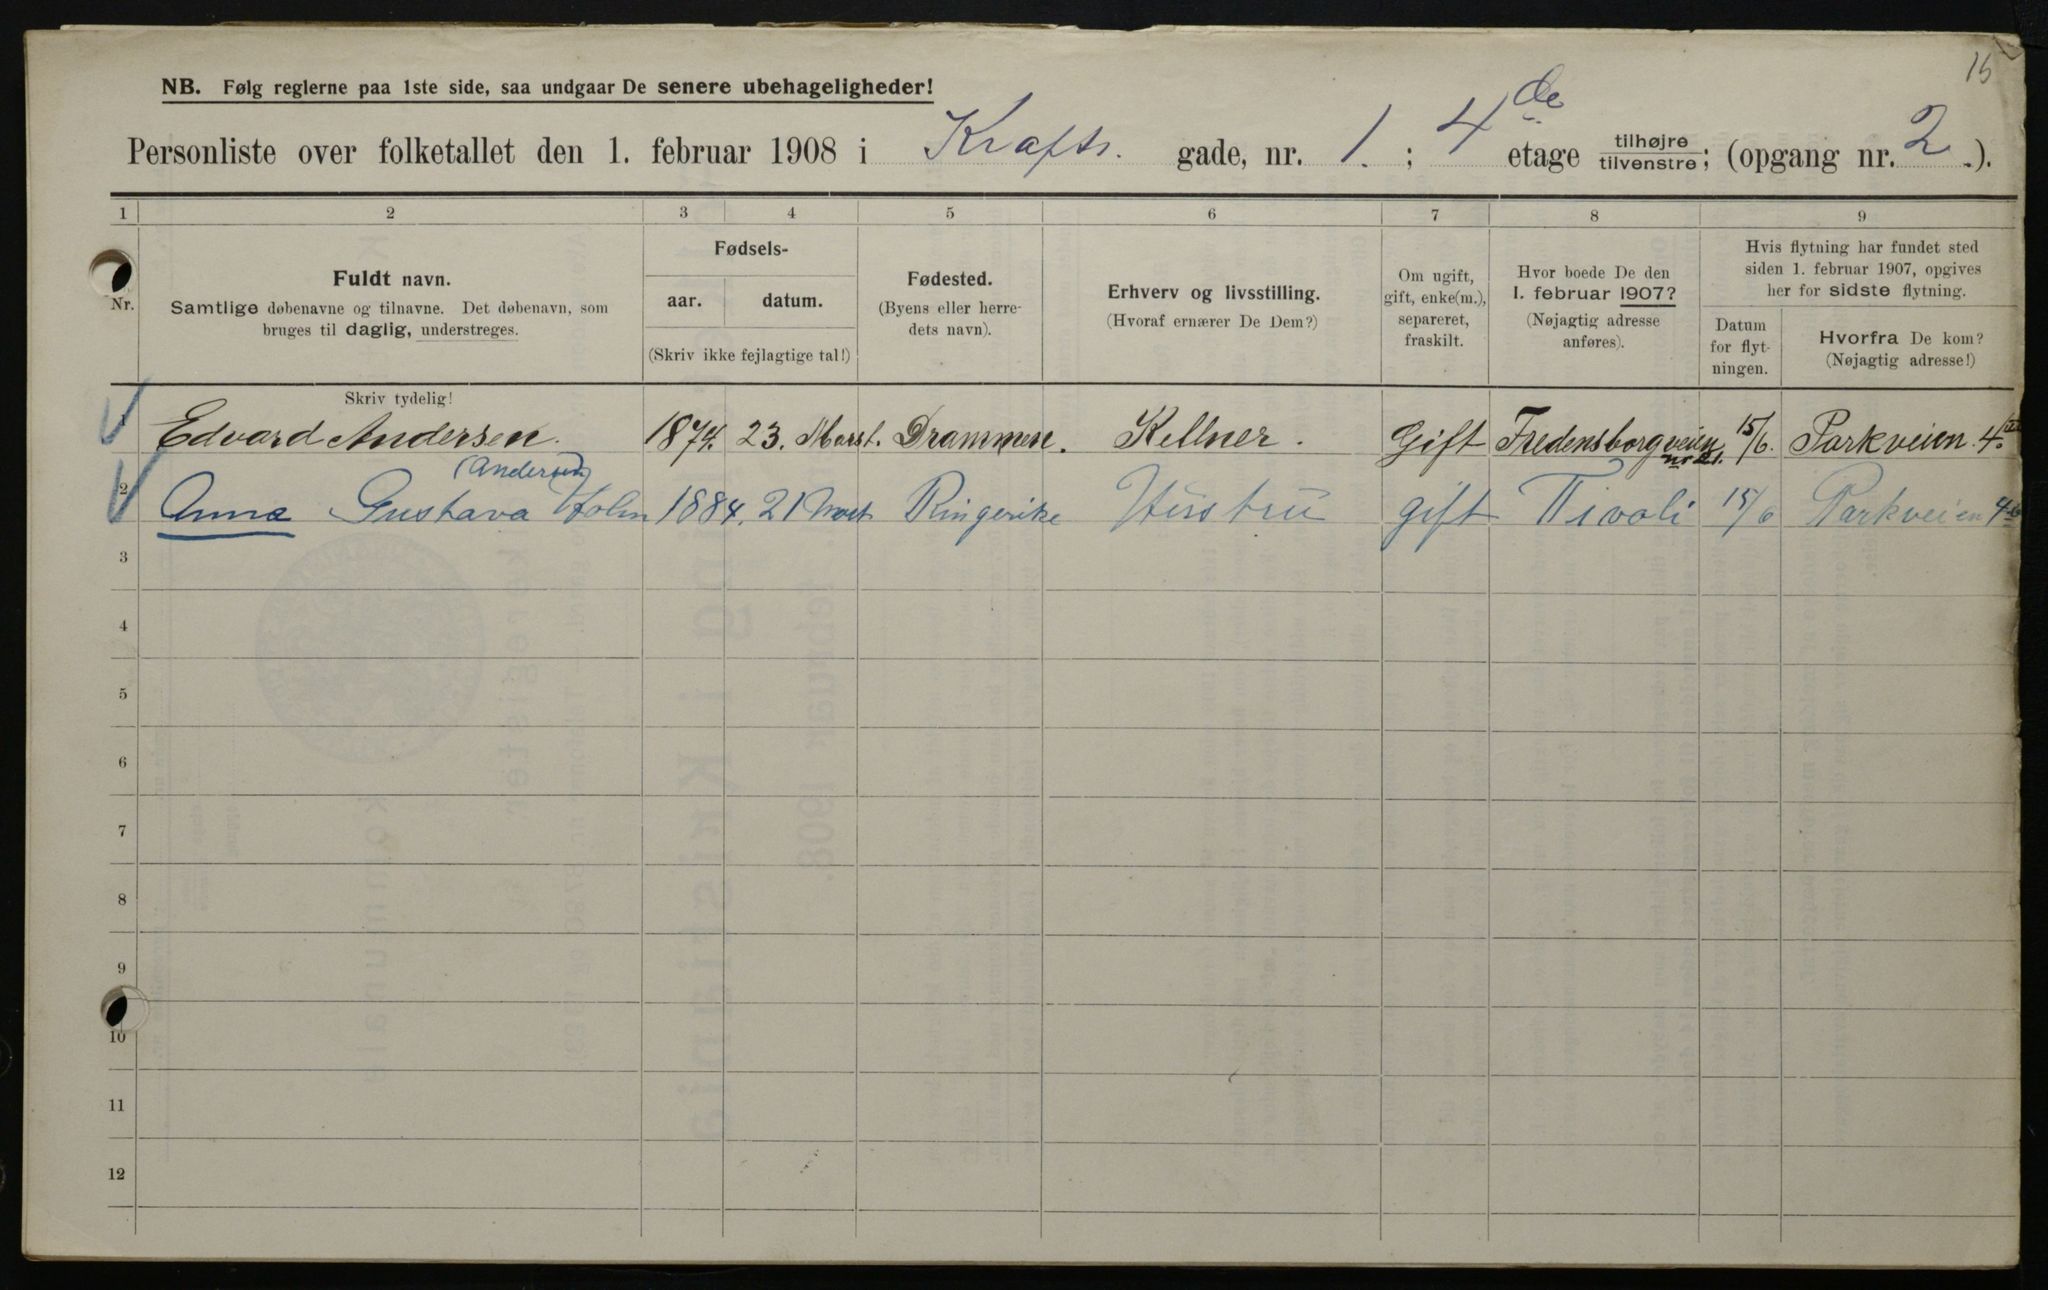 15
NB. Følg reglerne paa 1ste side, saa undgaar De senere ubehageligheder!
Personliste over folketallet den 1. februar 1908 i Krafts. gade, nr. 1. ; 4de etage tilhøjre tilvenstre; (opgang nr. 2.).
1 2 3 4 5 6 7 8 9
Nr.
Fuldt navn.
Samtlige døbenavne og tilnavne. Det døbenavn, som
bruges til daglig, understreges.
Skriv tydelig!
Fødsels-
aar. datum.
(Skriv ikke fejlagtige tal!)
Fødested.
(Byens eller herre-
dets navn).
Erhverv og livsstilling.
(Hvoraf ernærer De Dem?)
Om ugift,
gift, enke(m.),
separeret,
fraskilt.
Hvor boede De den
1. februar 1907?
(Nøjagtig adresse
anføres).
Hvis flytning har fundet sted
siden 1. februar 1907, opgives
her for sidste flytning.
Datum
for flyt-
ningen.
Hvorfra De kom?
(Nøjagtig adresse!)
1 Edvard Andersen. 1874. 23. Marst. Drammen. Kellner. Gift Fredensborgveien nr 21. 15/6. Parkveien. 4.
(Andersen)
2 Anna Gustava Holm 1884. 21 Ringerike Hustru gift Tivoli 15/6 Parkveien 4
3
4
5
6
7
8
9
10
11
12